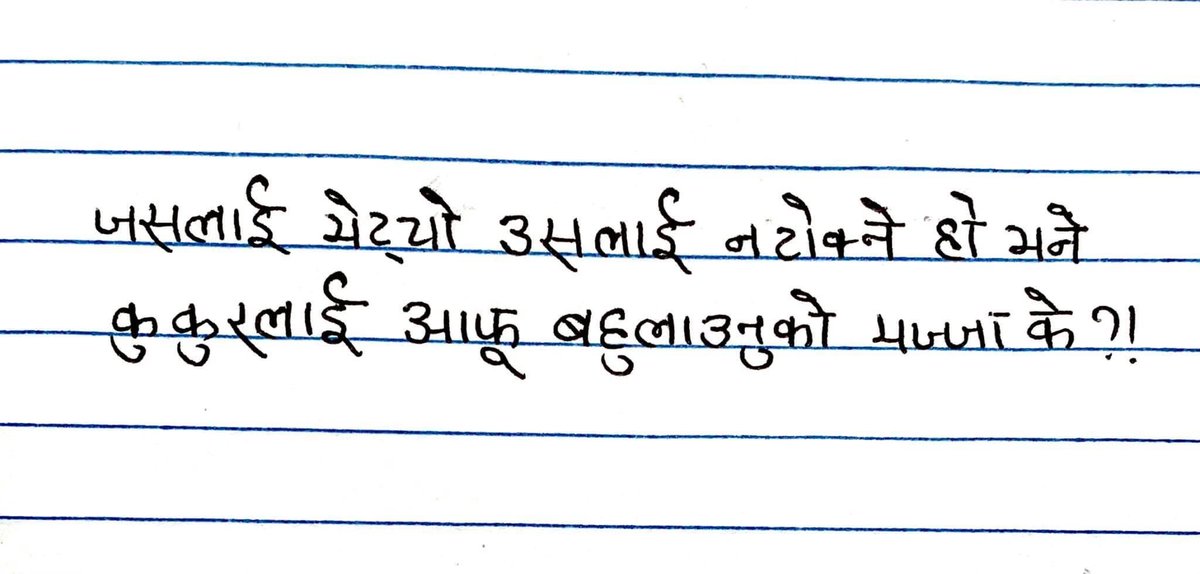 जसलाई भेट्यो उसलाई नटोक्ने हो भने
कुकुरलाई आफू बहुलाउनुको मज्जा के?!